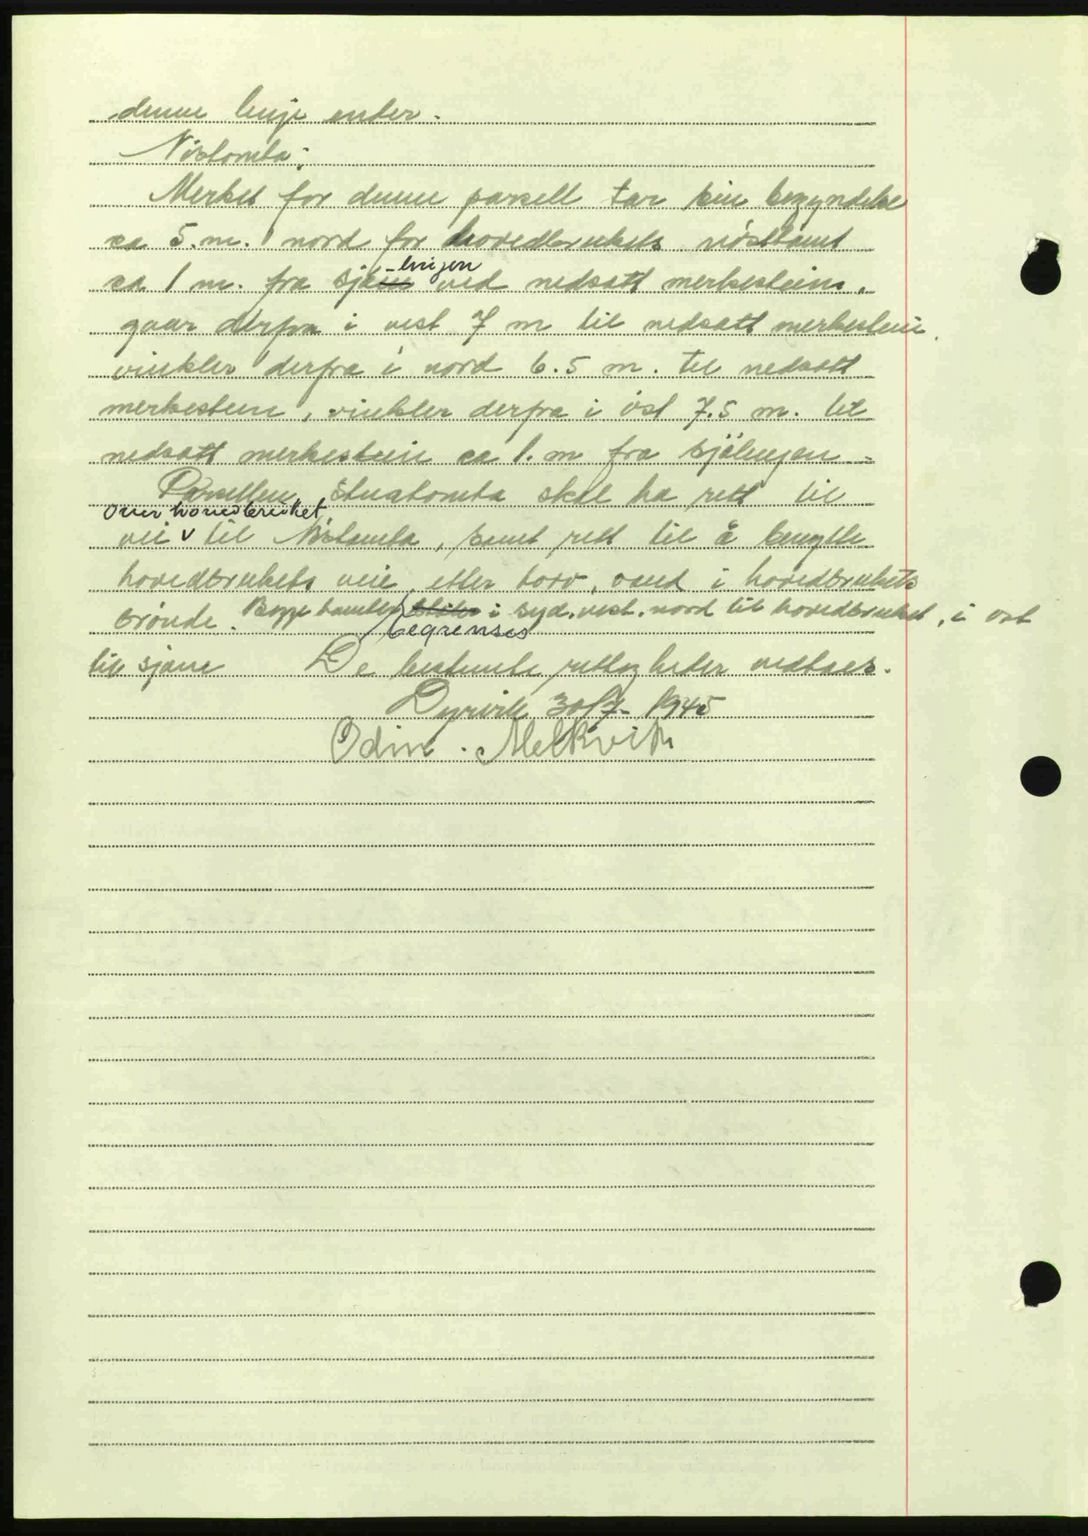 denne linje ender.
Nöstomta:
Merket for denne parsell tar sin begyndelse
ca 5. m. nord for hovedbrukets nösttomt
ca 1 m. fra sjö-lingen ved nedsatt merkestein,
gaar derfra i vest 7 m til nedsatt merkestein,
vinkler derfra i nord 6.5 m. til nedsatt
merkestein, vinkler derfra i öst 7.5 m. til
nedsatt merkestein ca 1. m fra sjölingen.
Parsellen Stuatomta skal ha rett til
over hovedbruket
vei v til Nöstomta, samt rett til å benytte
hovedbrukets veie efter torv, vand i hovedbrukets
brönde. Begge tomter i syd. vest. nord til hovedbruket, i ost
begrenses
til sjöen De bestemte rettigheter vedtaes.
Dyrvik 30/7- 1945
Odin. Melkvik